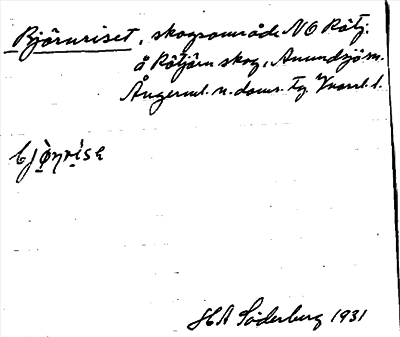 Björnriset, skogsområde NO Rötj.
å Rötjärn skog, Anundsjö sn.
Ångerml. n. doms. tg.
bjò̤ŋri̤se
HA Söderberg 1931